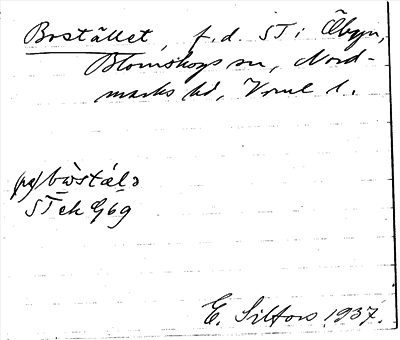 Bostället, f.d. ST i Åbyn,
Blomskogs sn, Nord-
marks hd, Vrml l.
(på) bωstäLə
ST ek G69
E. Silfors 1937.